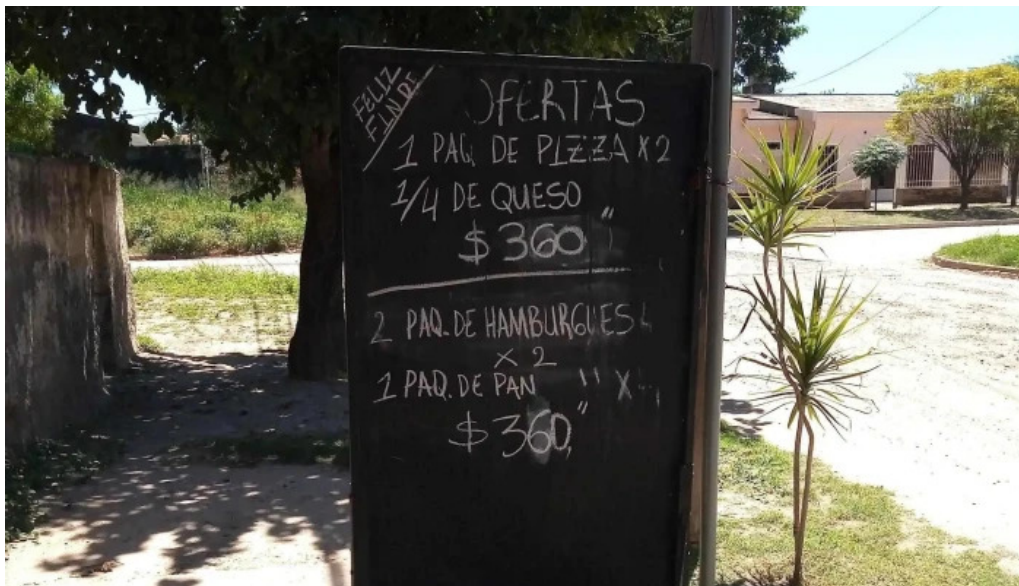 FELIZ
FIN DE
OFERTAS
1 PAQ. DE PIZZA X 2
1/4 DE QUESO
$ 360 "
2 PAQ. DE HAMBURGUES
X 2
1 PAQ. DE PAN " X
$ 360 "